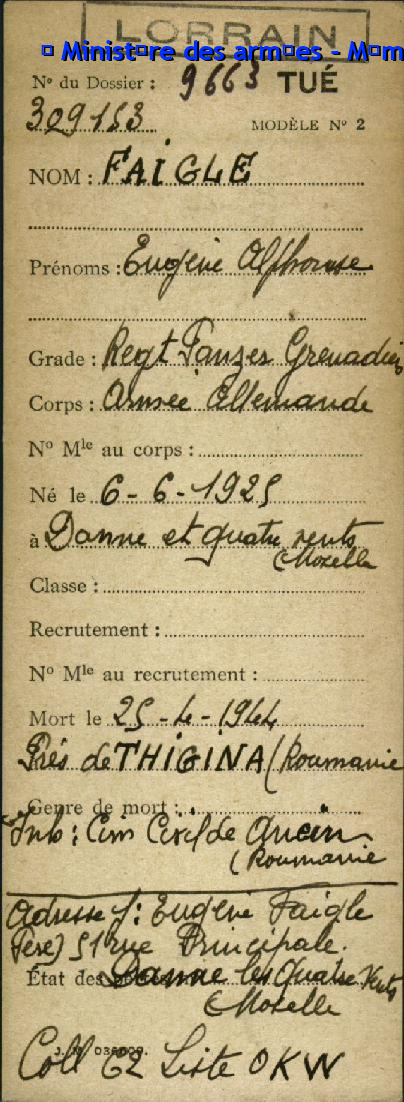 LORRAIN
Ministère des armées - Mém
N° du Dossier : 9663 TUÉ
309153
MODÈLE N° 2
NOM : FAIGLE
Prénoms : Eugène Alphonse
Grade : Regt Panzer Grenadier
Corps : Armée Allemande
N° Mle au corps :
Né le 6-6-1925
à Danne et quatre vents
Moselle
Classe :
Recrutement :
N° Mle au recrutement :
Mort le 25-4-1944
Près de THIGINA (Roumanie
Genre de mort :
Inh: Cim Civil de
(Roumanie
Adresse f: Eugène Faigle
Père) 51 rue Principale.
État des Danne les Quatre Vents
Moselle
Coll 62 Liste OKW